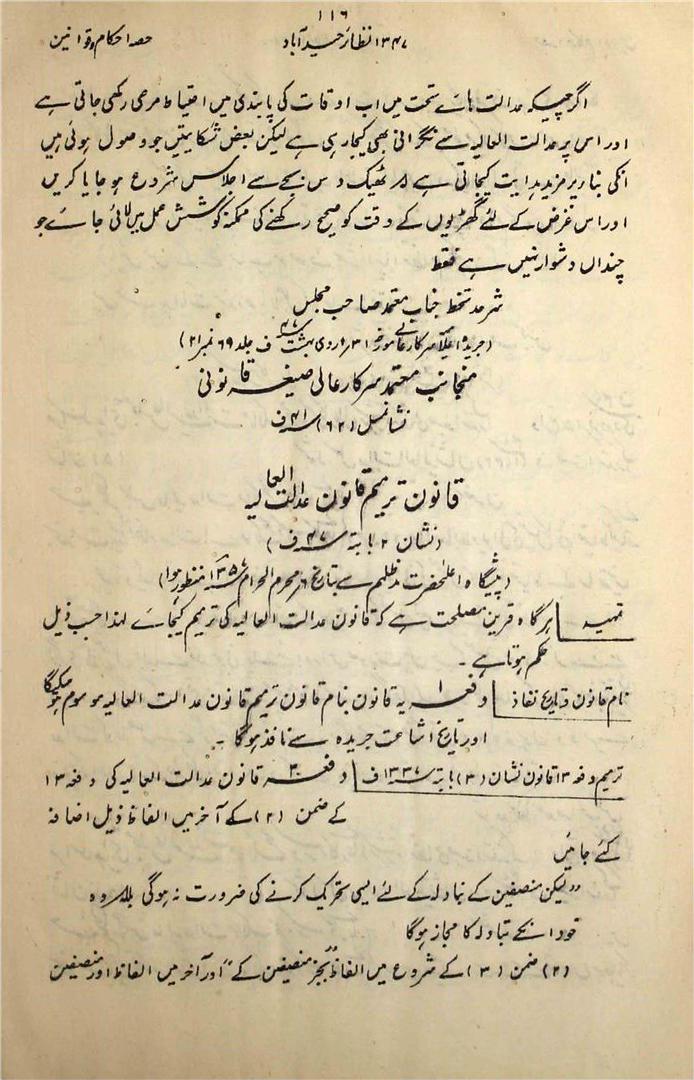 ۱۱۶
حصہ احکام و قوانین
نظائر حیدرآباد ۱۳۴۷
اگرچیکہ عدالت ہائے تحت میں اب اوقات کی پابندی میں احتیاط مرعی رکھی جاتی ہے
اور اس پر عدالت العالیہ سے نگرانی بھی کیجارہی ہے لیکن بعض شکایتیں جو وصول ہوئی ہیں
انکی بناء پر مزید ہدایت کیجاتی ہے کہ ٹھیک دس بجے سے اجلاس شروع ہو جایا کریں
اور اس غرض کے لئے گھڑیوں کے وقت کو صحیح رکھنے کی ممکنہ کوشش عمل میں لائی جائے جو
چنداں دشوار نہیں ہے فقط
شرحدستخط جناب معتمد صاحب مجلس
(جریدہ اعلامیہ سرکارعالی مورخہ ۳۱ اردی بہشت ۴۷ ف جلد ۶۹ نمبر ۲۱)
منجانب معتمد سرکارعالی صیغہ قانونی
نشان مسل (۶۲) ۴۱ ف
قانون ترمیم قانون عدالت العالیہ
(نشان ۲ بابتہ ۴۷ ف)
(پیشگاہ اعلیٰحضرت مدظلہم سے بتاریخ ۶ محرم الحرام ۱۳۵۷ منظور ہوا)
تمہید ہرگاہ قرین مصلحت ہے کہ قانون عدالت العالیہ کی ترمیم کیجائے لہذا حسب ذیل
حکم ہوتا ہے۔
نام قانون و تاریخ نفاذ دفعہ ۱ یہ قانون بنام قانون ترمیم قانون عدالت العالیہ موسوم ہوسکیگا
اور تاریخ اشاعت جریدہ سے نافذ ہوگا۔
ترمیم دفعہ ۱۳ قانون نشان (۳) بابتہ ۱۳۳۷ ف دفعہ ۲ قانون عدالت العالیہ کی دفعہ ۱۳
کے ضمن (۲) کے آخر میں الفاظ ذیل اضافہ
کئے جائیں
”لیکن منصفین کے تبادلہ کے لئے ایسی تحریک کرنے کی ضرورت نہ ہوگی بلکہ وہ
خود انکے تبادلہ کا مجاز ہوگا
(۲) ضمن (۳) کے شروع میں الفاظ ”بجز منصفین کے“ اور آخر میں الفاظ اور منصفین